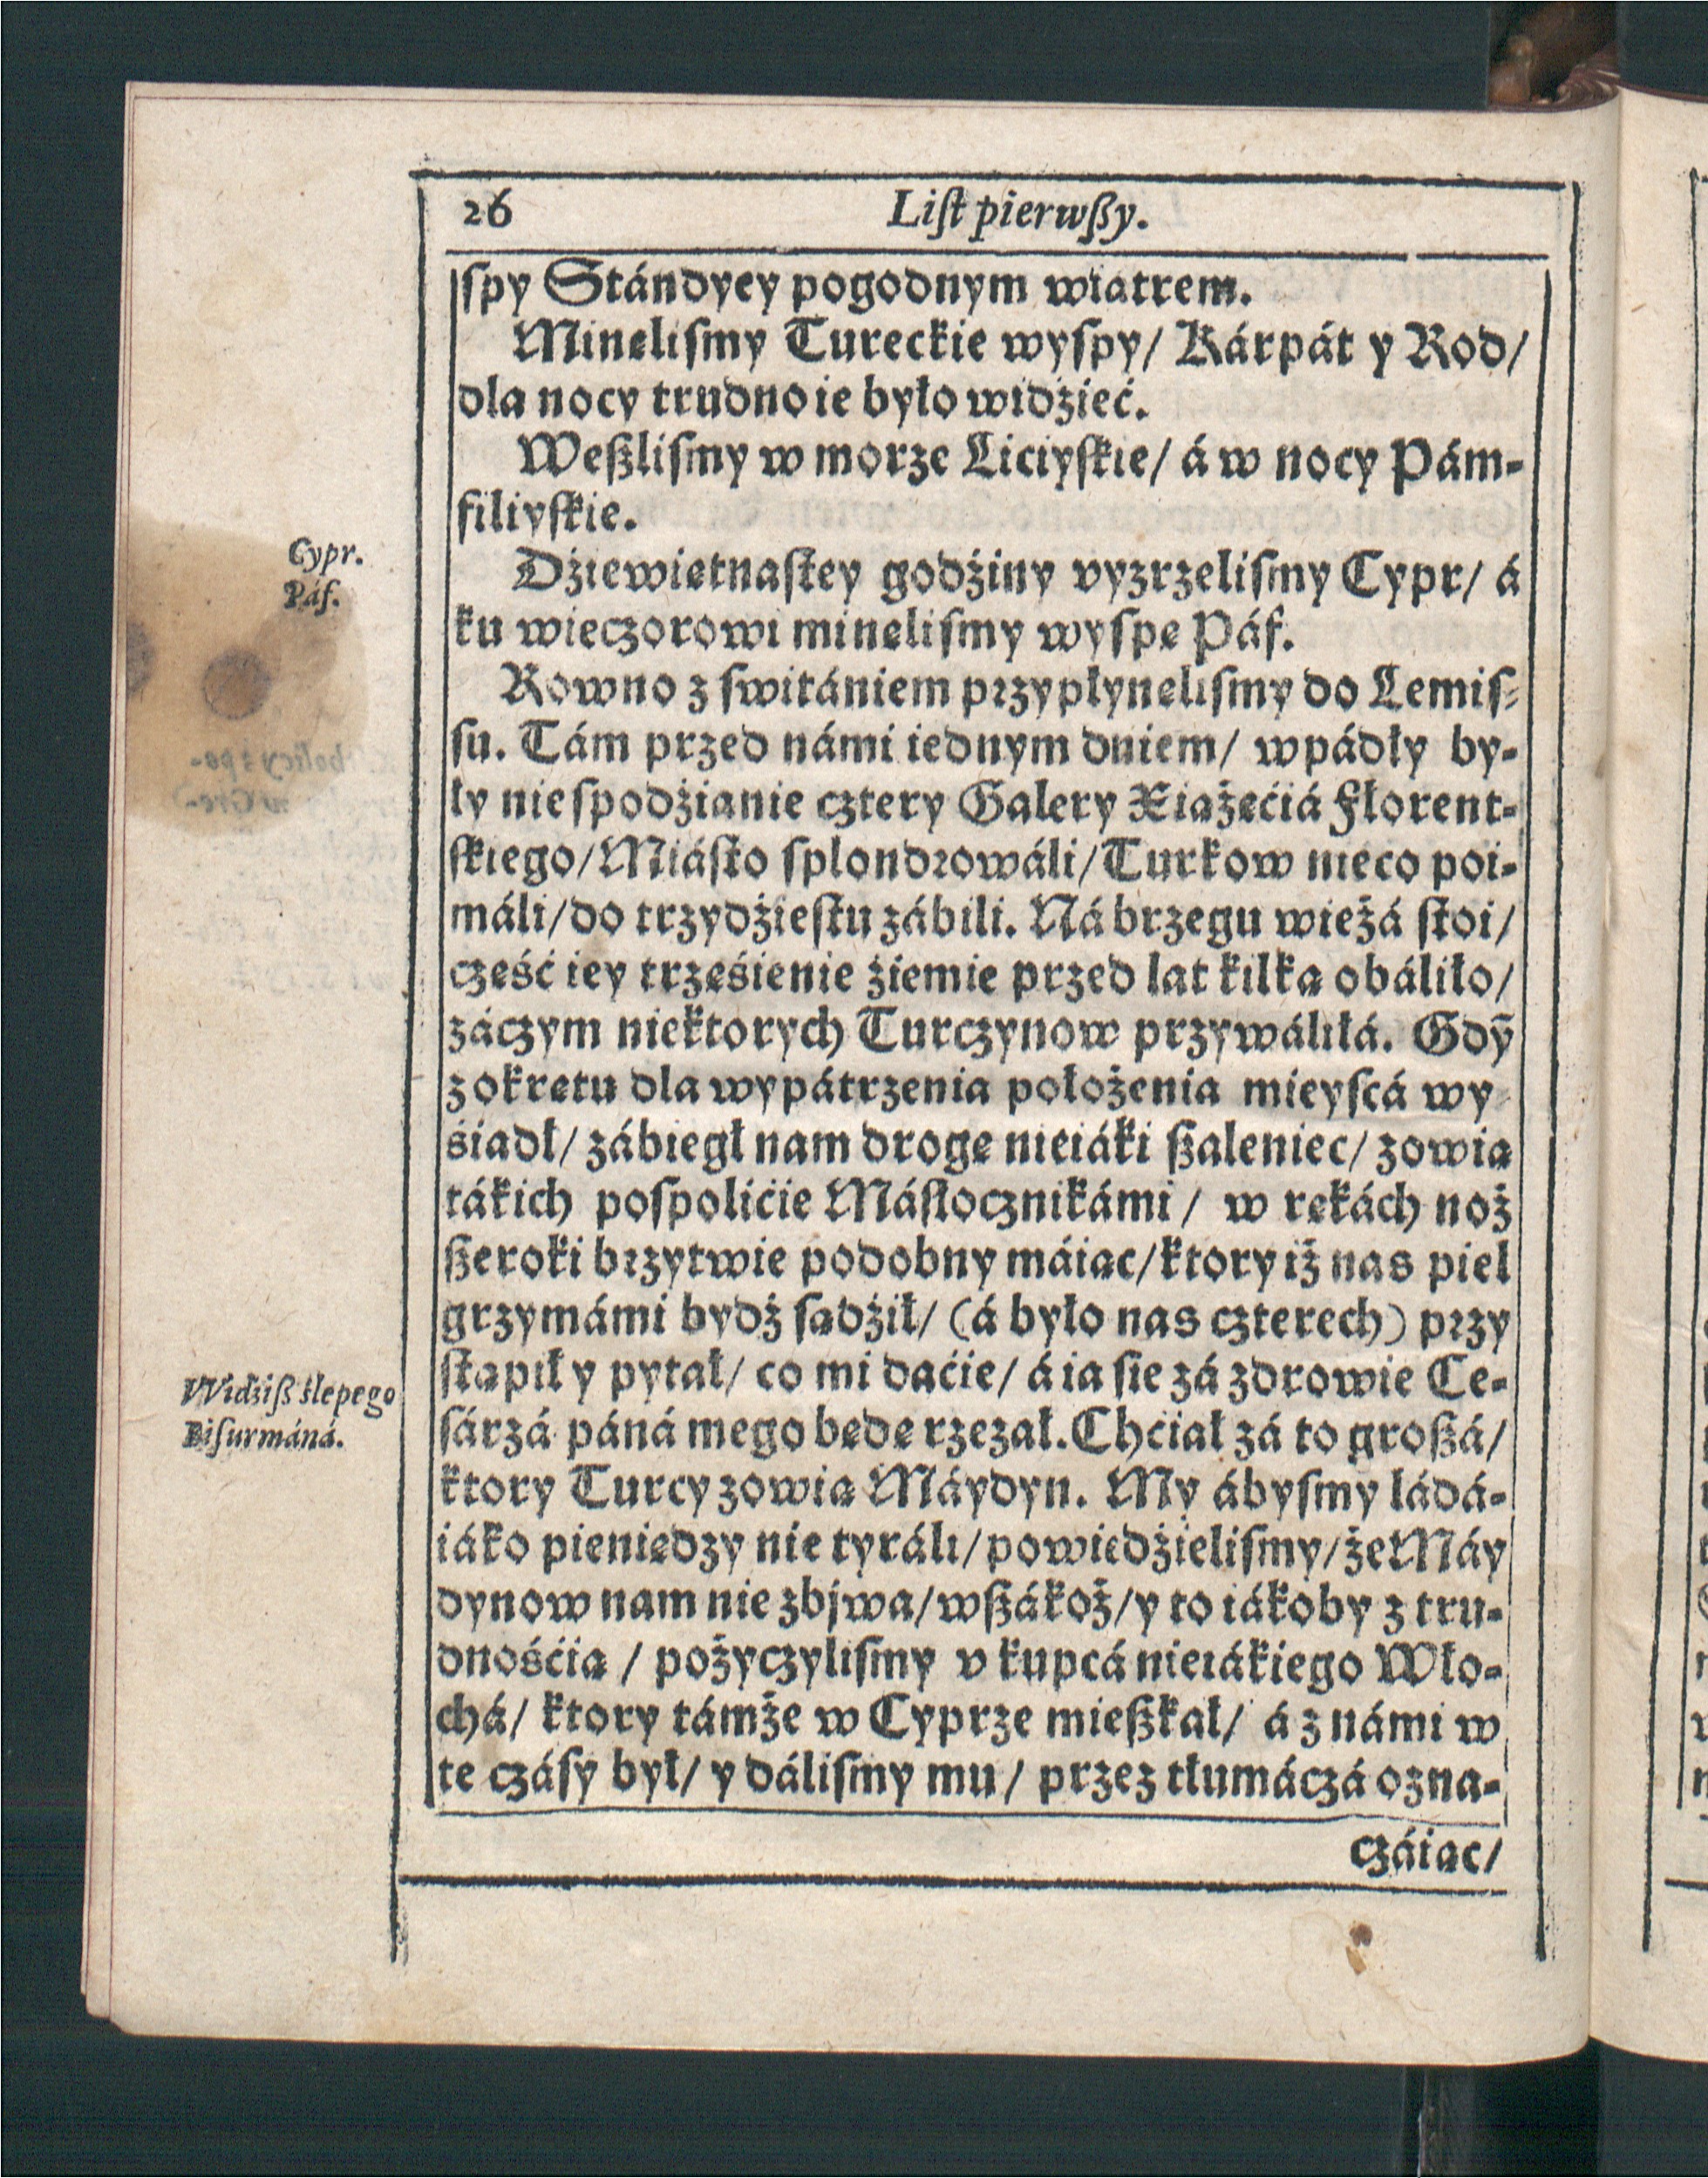 26 Liſt pierwßy.
ſpy Stándyey pogodnym wiatrem.
Minęliſmy Tureckie wyſpy/ Kárpát y Rod/
dla nocy trudno ie było widźieć.
Weßliſmy w morze Liciyſkie/ á w nocy Pám-
filiyſkie.
Cypr.
Páf.
Dźiewiętnaſtey godźiny vyzrzeliſmy Cypr/ á
ku wieczorowi minęliſmy wyſpę Páf.
Rowno z ſwitániem przypłynęliſmy do Lemiſ-
ſu. Tám przed námi iednym dniem/ wpádły by-
ły nieſpodźianie cztery Galery Xiążęćiá Florent-
ſkiego/ Miáſto ſplondrowáli/ Turkow nieco poi-
máli/ do trzydźieſtu zábili. Ná brzegu wieżá ſtoi/
część iey trzęśienie źiemie przed lat kilką obáliło/
záczym niektorych Turczynow przywáliłá. Gdỹ
z okrętu dla wypátrzenia położenia mieyſcá wy
śiadł/ zábiegł nam drogę nieiáki ßaleniec/ zowią
tákich poſpolićie Máſłocznikámi/ w rękách noż
ßeroki brzytwie podobny máiąc/ ktory iż nas piel
grzymámi bydź ſądźił/ (á było nas czterech) przy
ſtąpił y pytał/ co mi daćie/ á ia ſię zá zdrowie Ce-
Widźiß ślepego
Biſurmáná.
ſárzá páná mego będę rzezał. Chćiał zá to großá/
ktory Turcy zowią Máydyn. My ábyſmy ládá-
iáko pieniędzy nie tyráli/ powiedźieliſmy/ że Máy
dynow nam nie zbywa/ wßákoż/ y to iákoby z tru-
dnośćią / pożyczyliſmy v kupcá nieiákiego Wło-
chá/ ktory támże w Cyprze mießkał/ á z námi w
te czáſy był/ y dáliſmy mu/ przez tłumáczá ozna-
czáiąc/